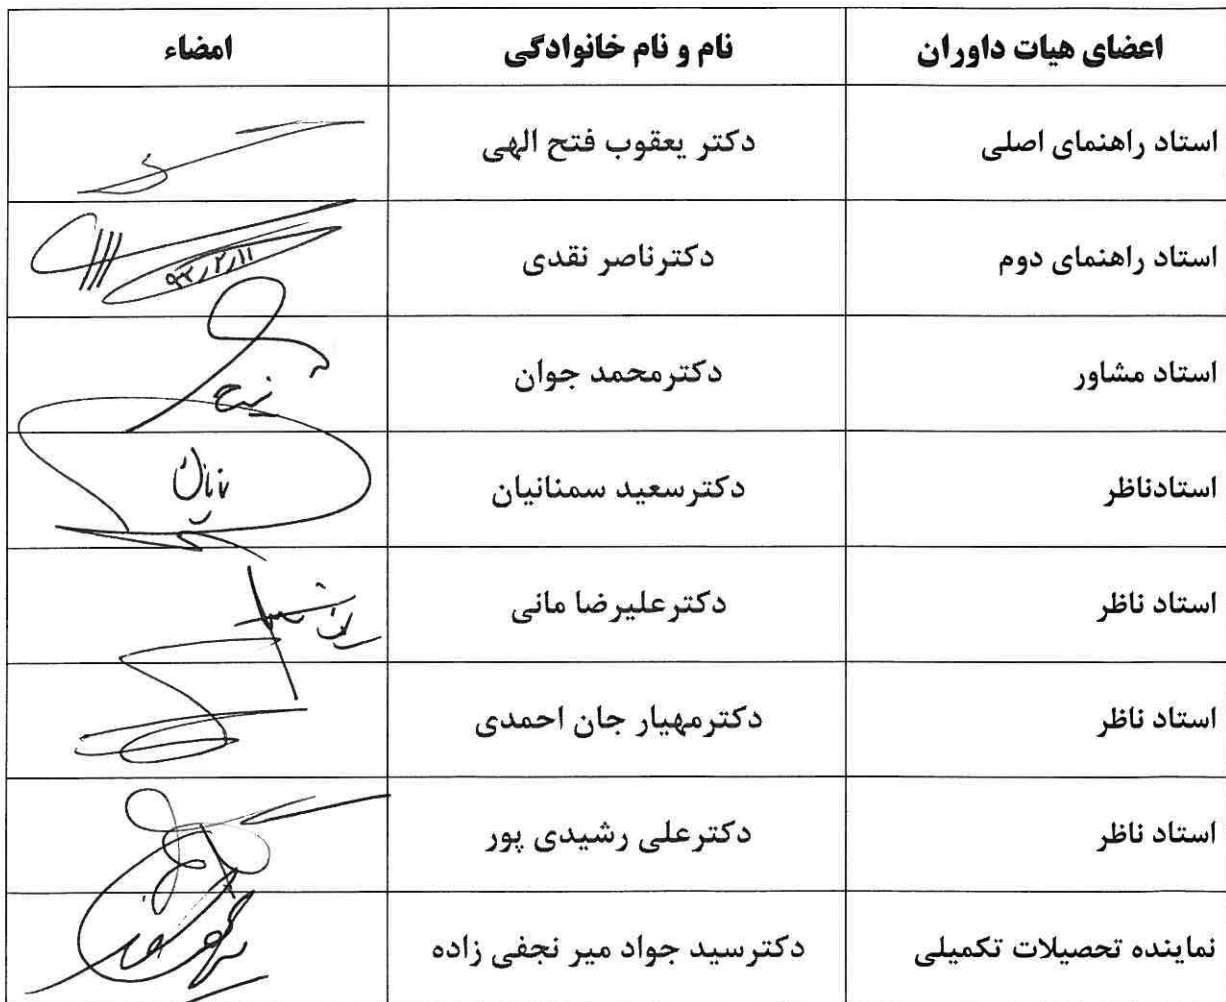 اعضای هیات داوران نام و نام خانوادگی امضاء
استاد راهنمای اصلی دکتر یعقوب فتح الهی
استاد راهنمای دوم دکترناصر نقدی ۹۳/۲/۱۱
استاد مشاور دکترمحمد جوان
استادناظر دکترسعید سمنانیان
استاد ناظر دکترعلیرضا مانی
استاد ناظر دکترمهیار جان احمدی
استاد ناظر دکترعلی رشیدی پور
نماینده تحصیلات تکمیلی دکترسید جواد میر نجفی زاده